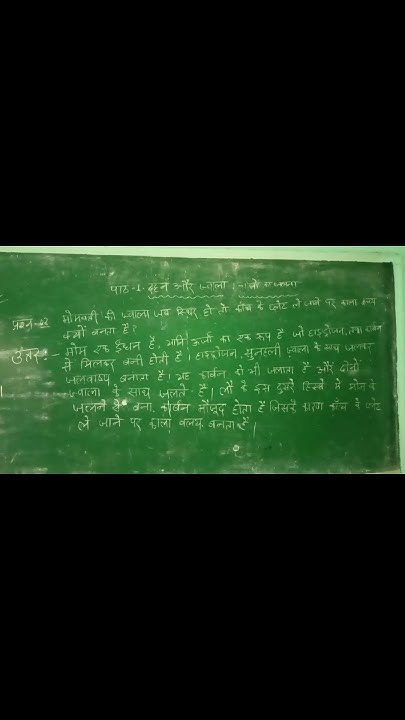 पाठ-1. दहन और ज्वाला :
प्रश्न-02 मोमबत्ती की ज्वाला जब स्थिर हो तो काँच के प्लेट ले जाने पर काला वलय
क्यों बनता है?
उत्तर:- मोम एक ईंधन है, यानि ऊर्जा का एक रूप है जो हाइड्रोजन, तथा कार्बन
से मिलकर बनी होती है। हाइड्रोजन, सुनहली ज्वाला के साथ जलकर
जलवाष्प बनाता है। यह कार्बन को भी जलाता है और दोनों
ज्वाला के साथ जलते है। लौ के इस दूसरे हिस्से में मोम के
जलने से बना कार्बन मौजूद होता है जिसके कारण काँच के प्लेट
ले जाने पर काला वलय बनता है।